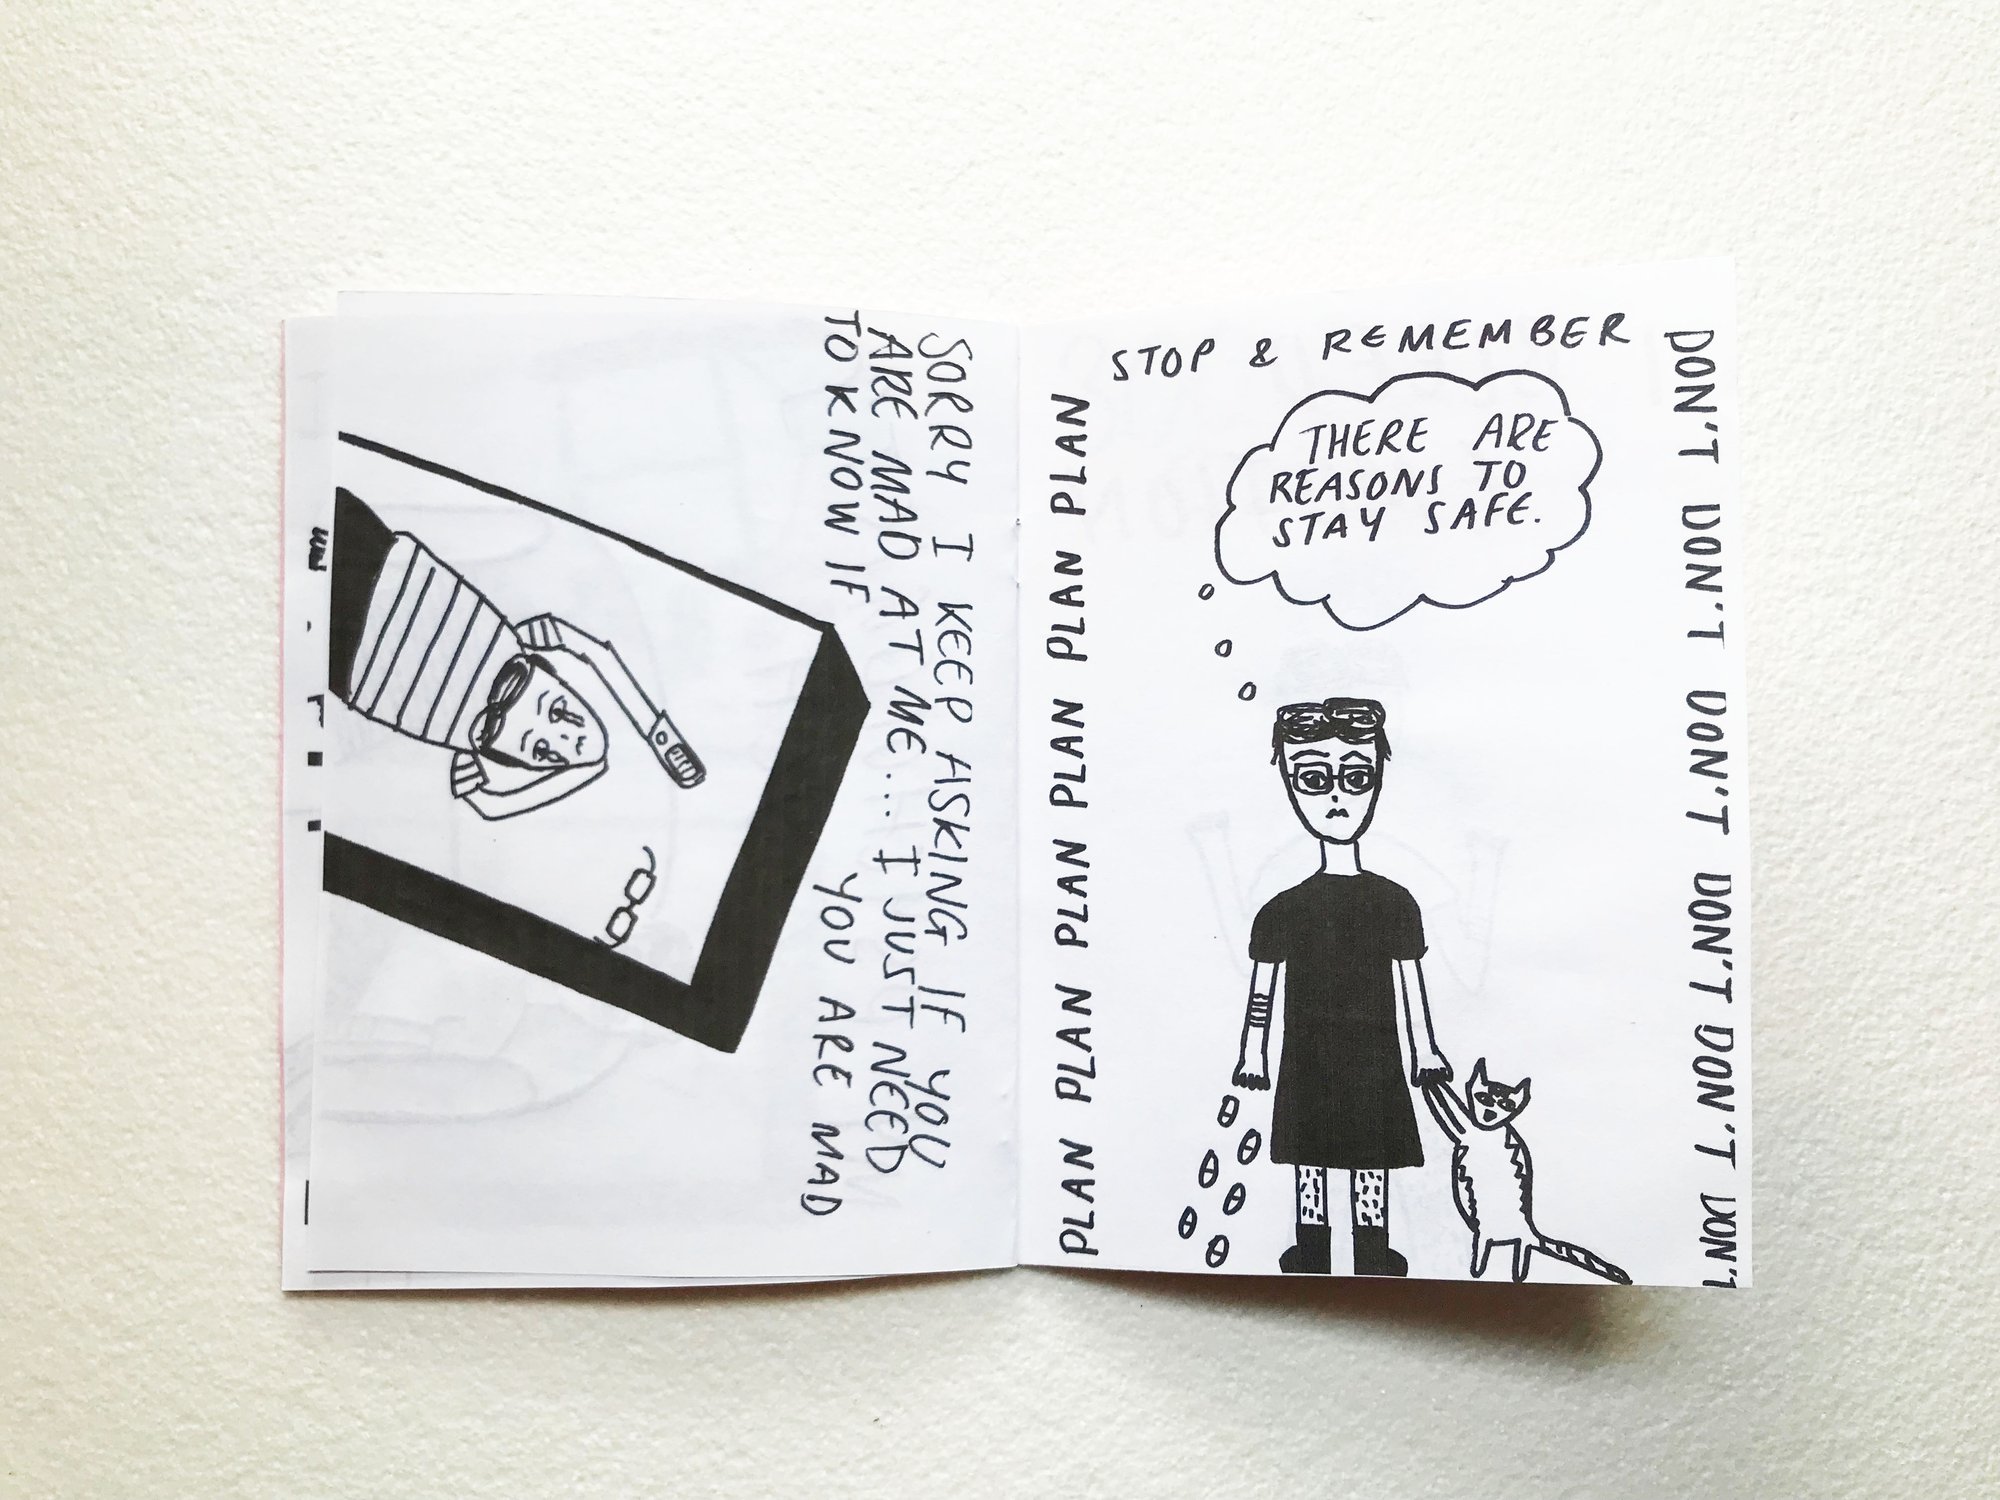 SORRY I KEEP ASKING IF YOU
ARE MAD AT ME... I JUST NEED
TO KNOW IF YOU ARE MAD
STOP & REMEMBER
THERE ARE
REASONS TO
STAY SAFE.
PLAN PLAN PLAN PLAN PLAN PLAN
DON'T DON'T DON'T DON'T DON'T DON'T